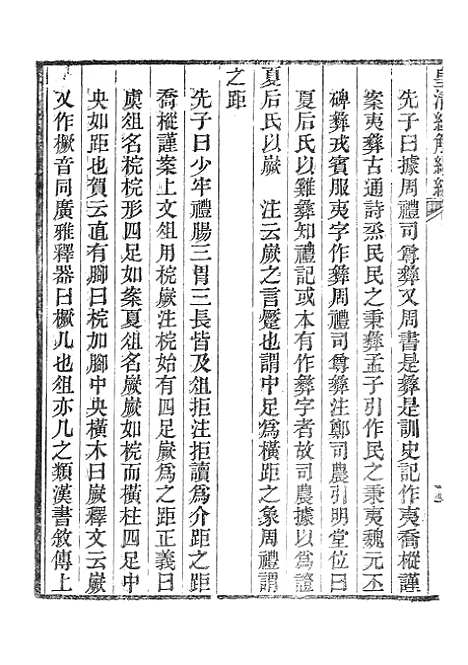 皇清經解續編
先子曰據周禮司尊彝又周書是彝是訓史記作夷喬樅謹
案夷彝古通詩烝民民之秉彝孟子引作民之秉夷魏元丕
碑彝戎賓服夷字作彝周禮司尊彝注鄭司農引明堂位曰
夏后氏以雞彝知禮記或本有作彝字者故司農據以為證
夏后氏以嶡　注云嶡之言蹷也謂中足為橫距之象周禮謂
之距
先子曰少牢禮腸三胃三長皆及俎拒注拒讀為介距之距
喬樅謹案上文俎用梡嶡注梡始有四足嶡為之距正義曰
虞俎名梡梡形四足如案夏俎名嶡嶡如梡而橫柱四足中
央如距也賀云直有腳曰梡加腳中央橫木曰嶡釋文云嶡
又作橛音同廣雅釋器曰橛几也俎亦几之類漢書敘傳上